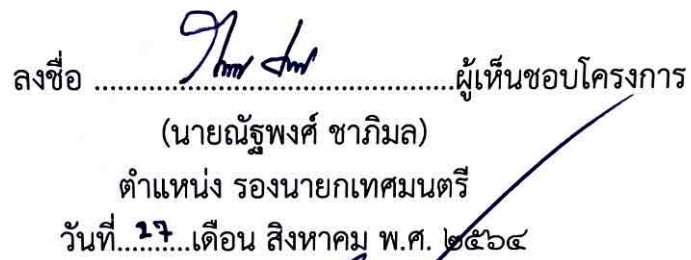 ลงชื่อ ..........................................ผู้เห็นชอบโครงการ
(นายณัฐพงศ์ ชาภิมล)
ตำแหน่ง รองนายกเทศมนตรี
วันที่...27...เดือน สิงหาคม พ.ศ. ๒๕๖๔